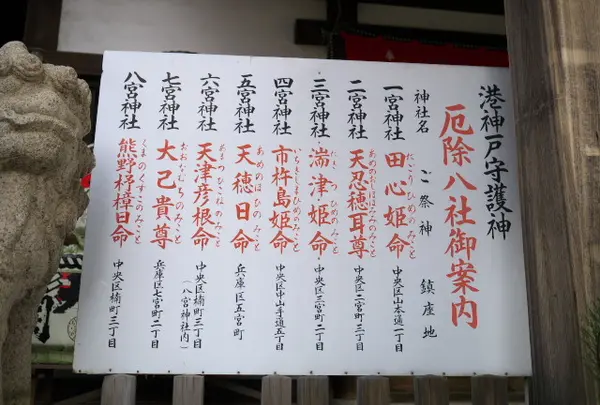 港神戸守護神
厄除八社御案内
神社名 ご祭神 鎮座地
一宮神社 田心姫命 中央区山本通一丁目
たごりひめのみこと
二宮神社 天忍穂耳尊 中央区二宮町三丁目
あめのおしほみみのみこと
三宮神社 湍津姫命 中央区三宮町二丁目
たきつひめのみこと
四宮神社 市杵島姫命 中央区中山手通五丁目
いちきしまひめのみこと
五宮神社 天穂日命 兵庫区五宮町
あめのほひのみこと
六宮神社 天津彦根命 中央区楠町三丁目
あまつひこねのみこと
(八宮神社内)
七宮神社 大己貴尊 兵庫区七宮町二丁目
おおなむちのみこと
八宮神社 熊野杼樟日命 中央区楠町三丁目
くまのくすひのみこと